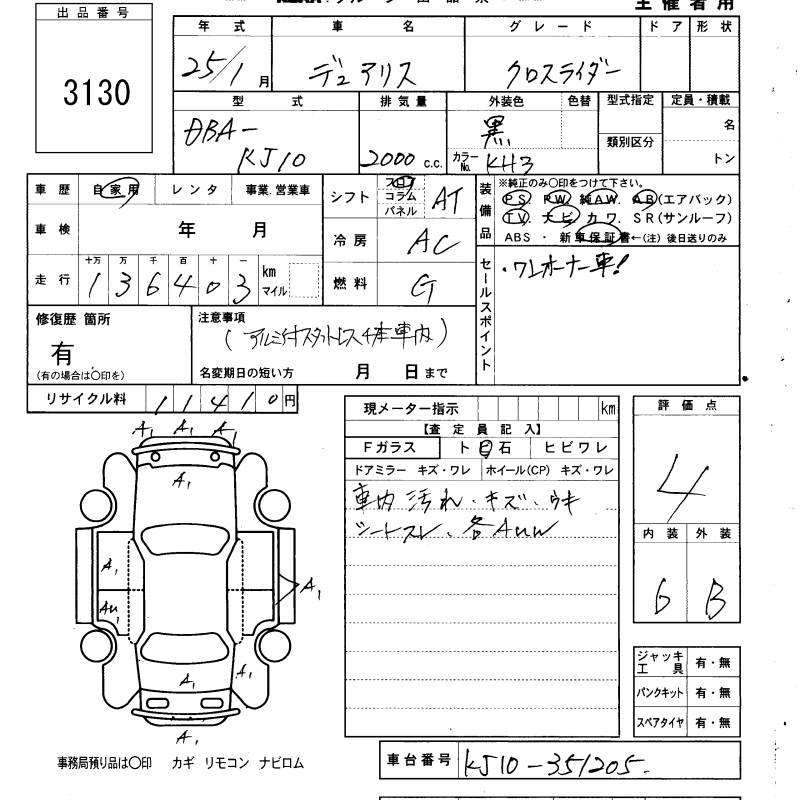 主催者用
出品番号
3130
年式 車名 グレード ドア 形状
25/1月 デュアリス クロスライダー
型式 排気量 外装色 色替 型式指定 定員・積載
DBA- 黒 名
KJ10 2000 c.c. カラーNo. KH3 類別区分 トン
車歴 自家用 レンタ 事業.営業車
車検 年 月
走行 十万 万 千 百 十 一 km
136403 マイル
シフト フロア コラム パネル AT
冷房 AC
燃料 G
装備品 ※純正のみ○印をつけて下さい。
PS PW 純AW. AB(エアバック)
TV. ナビ カワ. SR(サンルーフ)
ABS ・ 新車保証書←(注) 後日送りのみ
セールスポイント
・ワンオーナー車!
修復歴 箇所
有
(有の場合は○印を)
注意事項
(アルミ付スタットレス4本車内)
名変期日の短い方 月 日まで
リサイクル料 11410円
現メーター指示 km
【査定員記入】
Fガラス ト 石 ヒビワレ
ドアミラー キズ・ワレ ホイール(CP) キズ・ワレ
車内汚れ・キズ・ウキ
シートスレ、各AUW
評価点
4
内装 外装
6 B
ジャッキ工具 有・無
パンクキット 有・無
スペアタイヤ 有・無
A1 A1 A1
A1
A1
AU1
A1
A1
A1
A1
事務局預り品は○印 カギ リモコン ナビロム
車台番号 KJ10-351205.